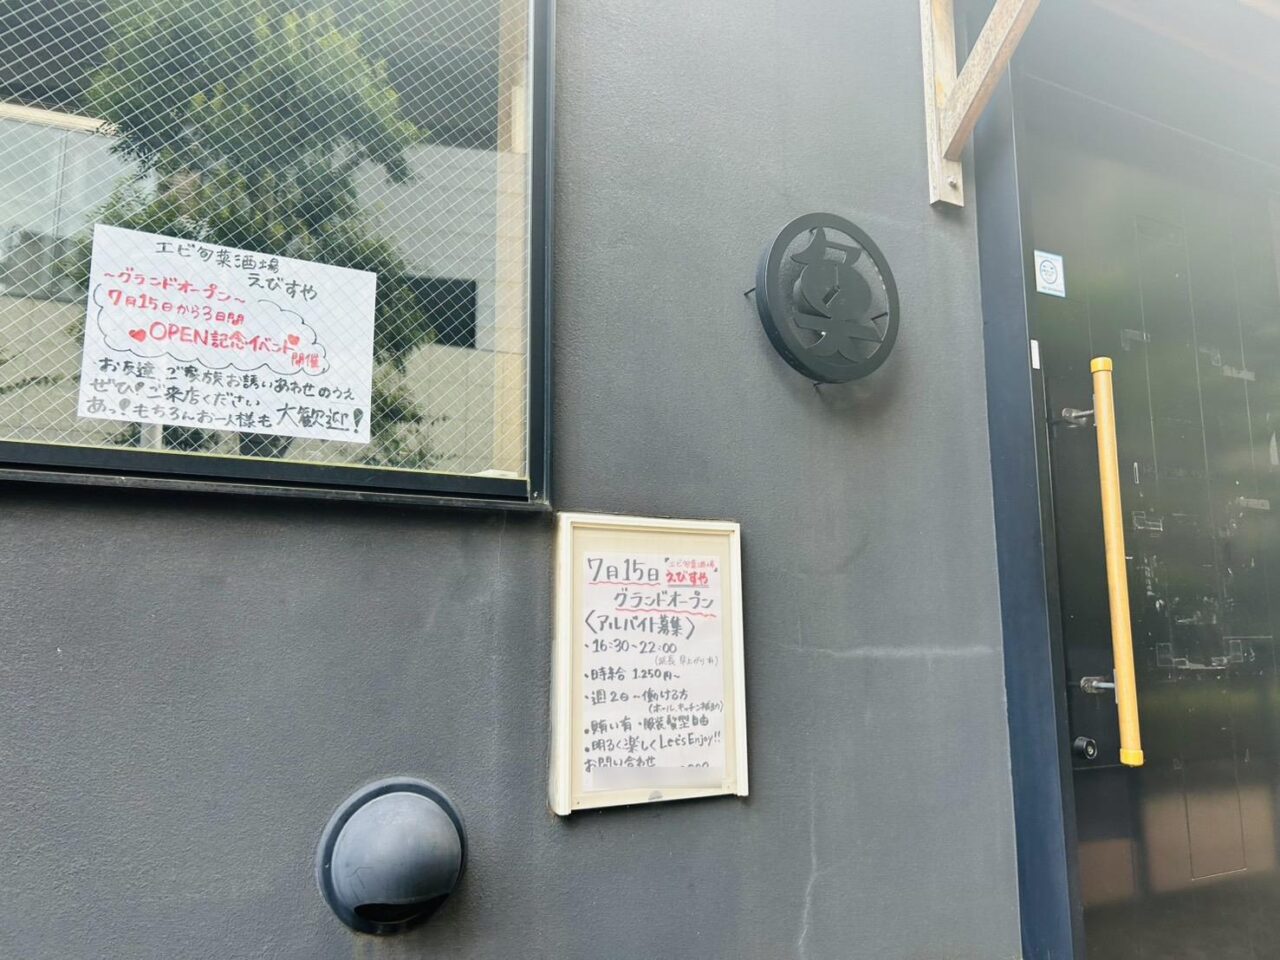 エビ旬菜酒場
えびすや
~グランドオープン~
7月15日から3日間
OPEN記念イベント
開催
お友達 ご家族お誘いあわせのうえ
ぜひ!ご来店ください
あっ!もちろんお一人様も 大歓迎!
7月15日 "エビ旬菜酒場
えびすや"
グランドオープン
〈アルバイト募集〉
・16:30~22:00
(延長 早上がり有)
・時給 1.250円~
・週2日~働ける方
(ホール、キッチン補助)
・賄い有・服装髪型自由
・明るく楽しくLet's Enjoy!!
お問い合わせ